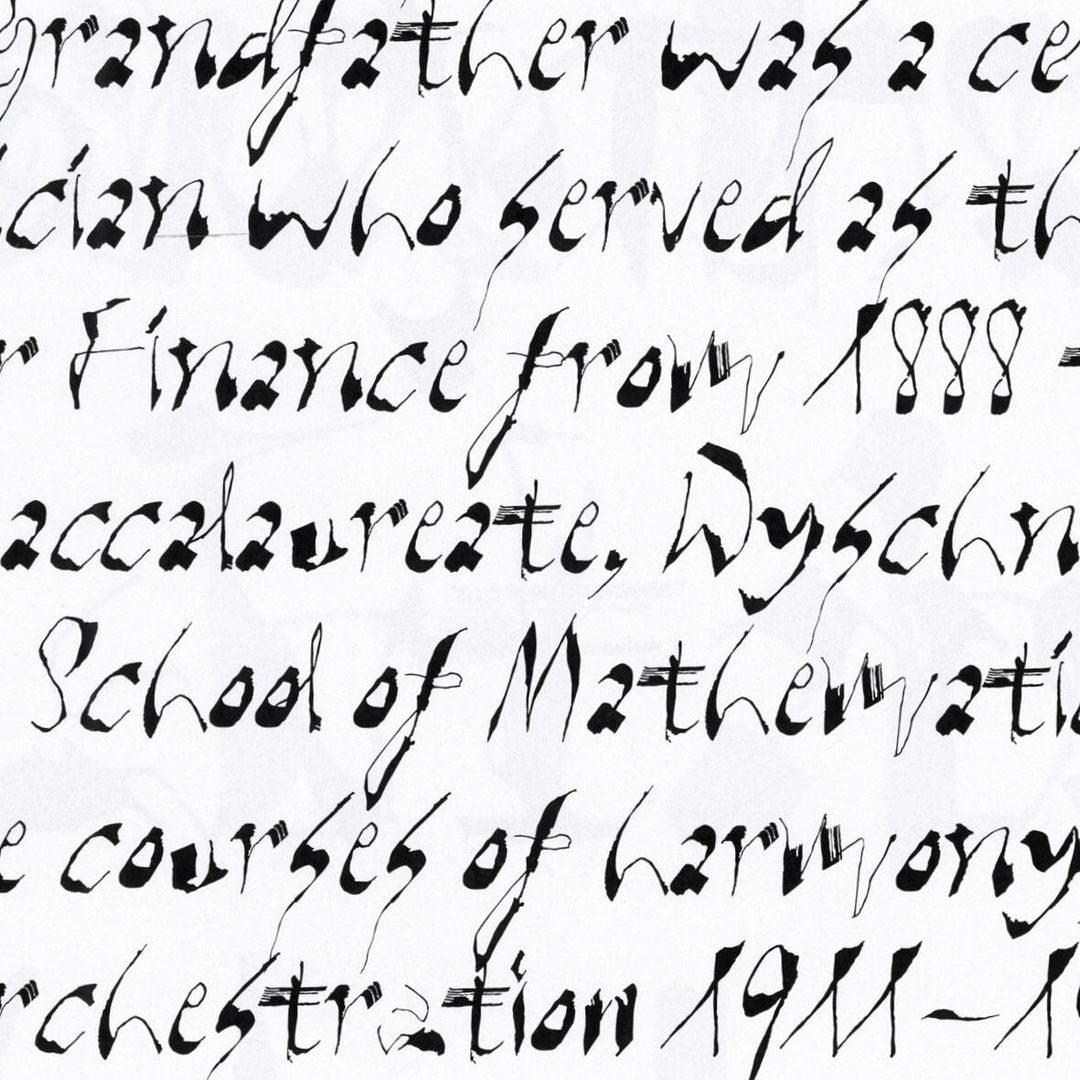 grandfather was a ce
ician who served as th
r Finance from 1888 -
accalaureate, Dyschn
School of Mathematic
e courses of harmony
rchestration 1911-19